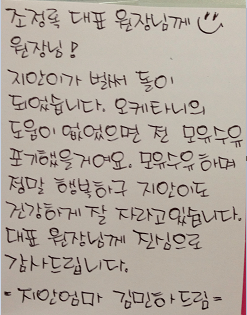 조정록 대표 원장님께
원장님!
지안이가 벌써 돌이
되었습니다. 오케타니의
도움이 없었으면 전 모유수유
포기했을거예요. 모유수유하며
정말 행복하구 지안이도
건강하게 잘 자라고있습니다.
대표 원장님께 진심으로
감사드립니다.
- 지안엄마 김민하드림 -